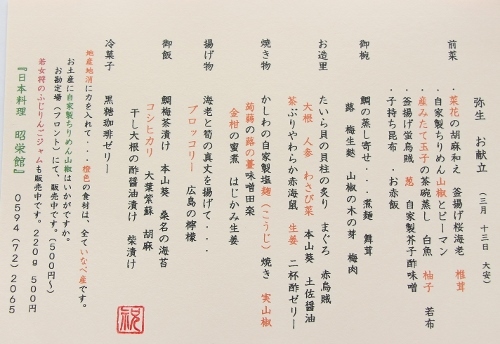 弥生 お献立 (三月 十三日 大安)
前菜
・菜花の胡麻和え 釜揚げ桜海老 椎茸
・自家製ちりめん山椒とピーマン
・産みたて玉子の茶碗蒸し 白魚 柚子 若布
・釜揚げ蛍烏賊 葱 自家製芥子酢味噌
・子持ち昆布 ・お赤飯
御椀
鯛の蒸し寄せ・・・煮麺 舞茸
蕗 梅生麩 山椒の木の芽 梅肉
お造里
たいら貝の貝柱の炙り まぐろ 赤烏賊
大根 人参 わさび菜 本山葵 土佐醤油
茶ぶりやわらか赤海鼠 生姜 二杯酢ゼリー
焼き物
かしわの自家製塩麹(こうじ)焼き 実山椒
蒟蒻の蕗の薹味噌田楽
金柑の蜜煮 はじかみ生姜
揚げ物
海老と筍の真丈を揚げて・・・
ブロッコリー 広島の檸檬
御飯
鯛梅茶漬け 本山葵 桑名の海苔
コシヒカリ 大葉紫蘇 胡麻
干し大根の酢醤油漬け 柴漬け
冷菓子 黒糖珈琲ゼリー
地産地消に力を入れて・・・橙色の食材は、全ていなべ産です。
お土産に自家製ちりめん山椒はいかがですか。
お勘定場(フロント)にて、販売中です。(500円~)
若女将のふじりんごジャムも販売中です。220g 500円
『日本料理 昭栄館』 0594(72)2065
祝